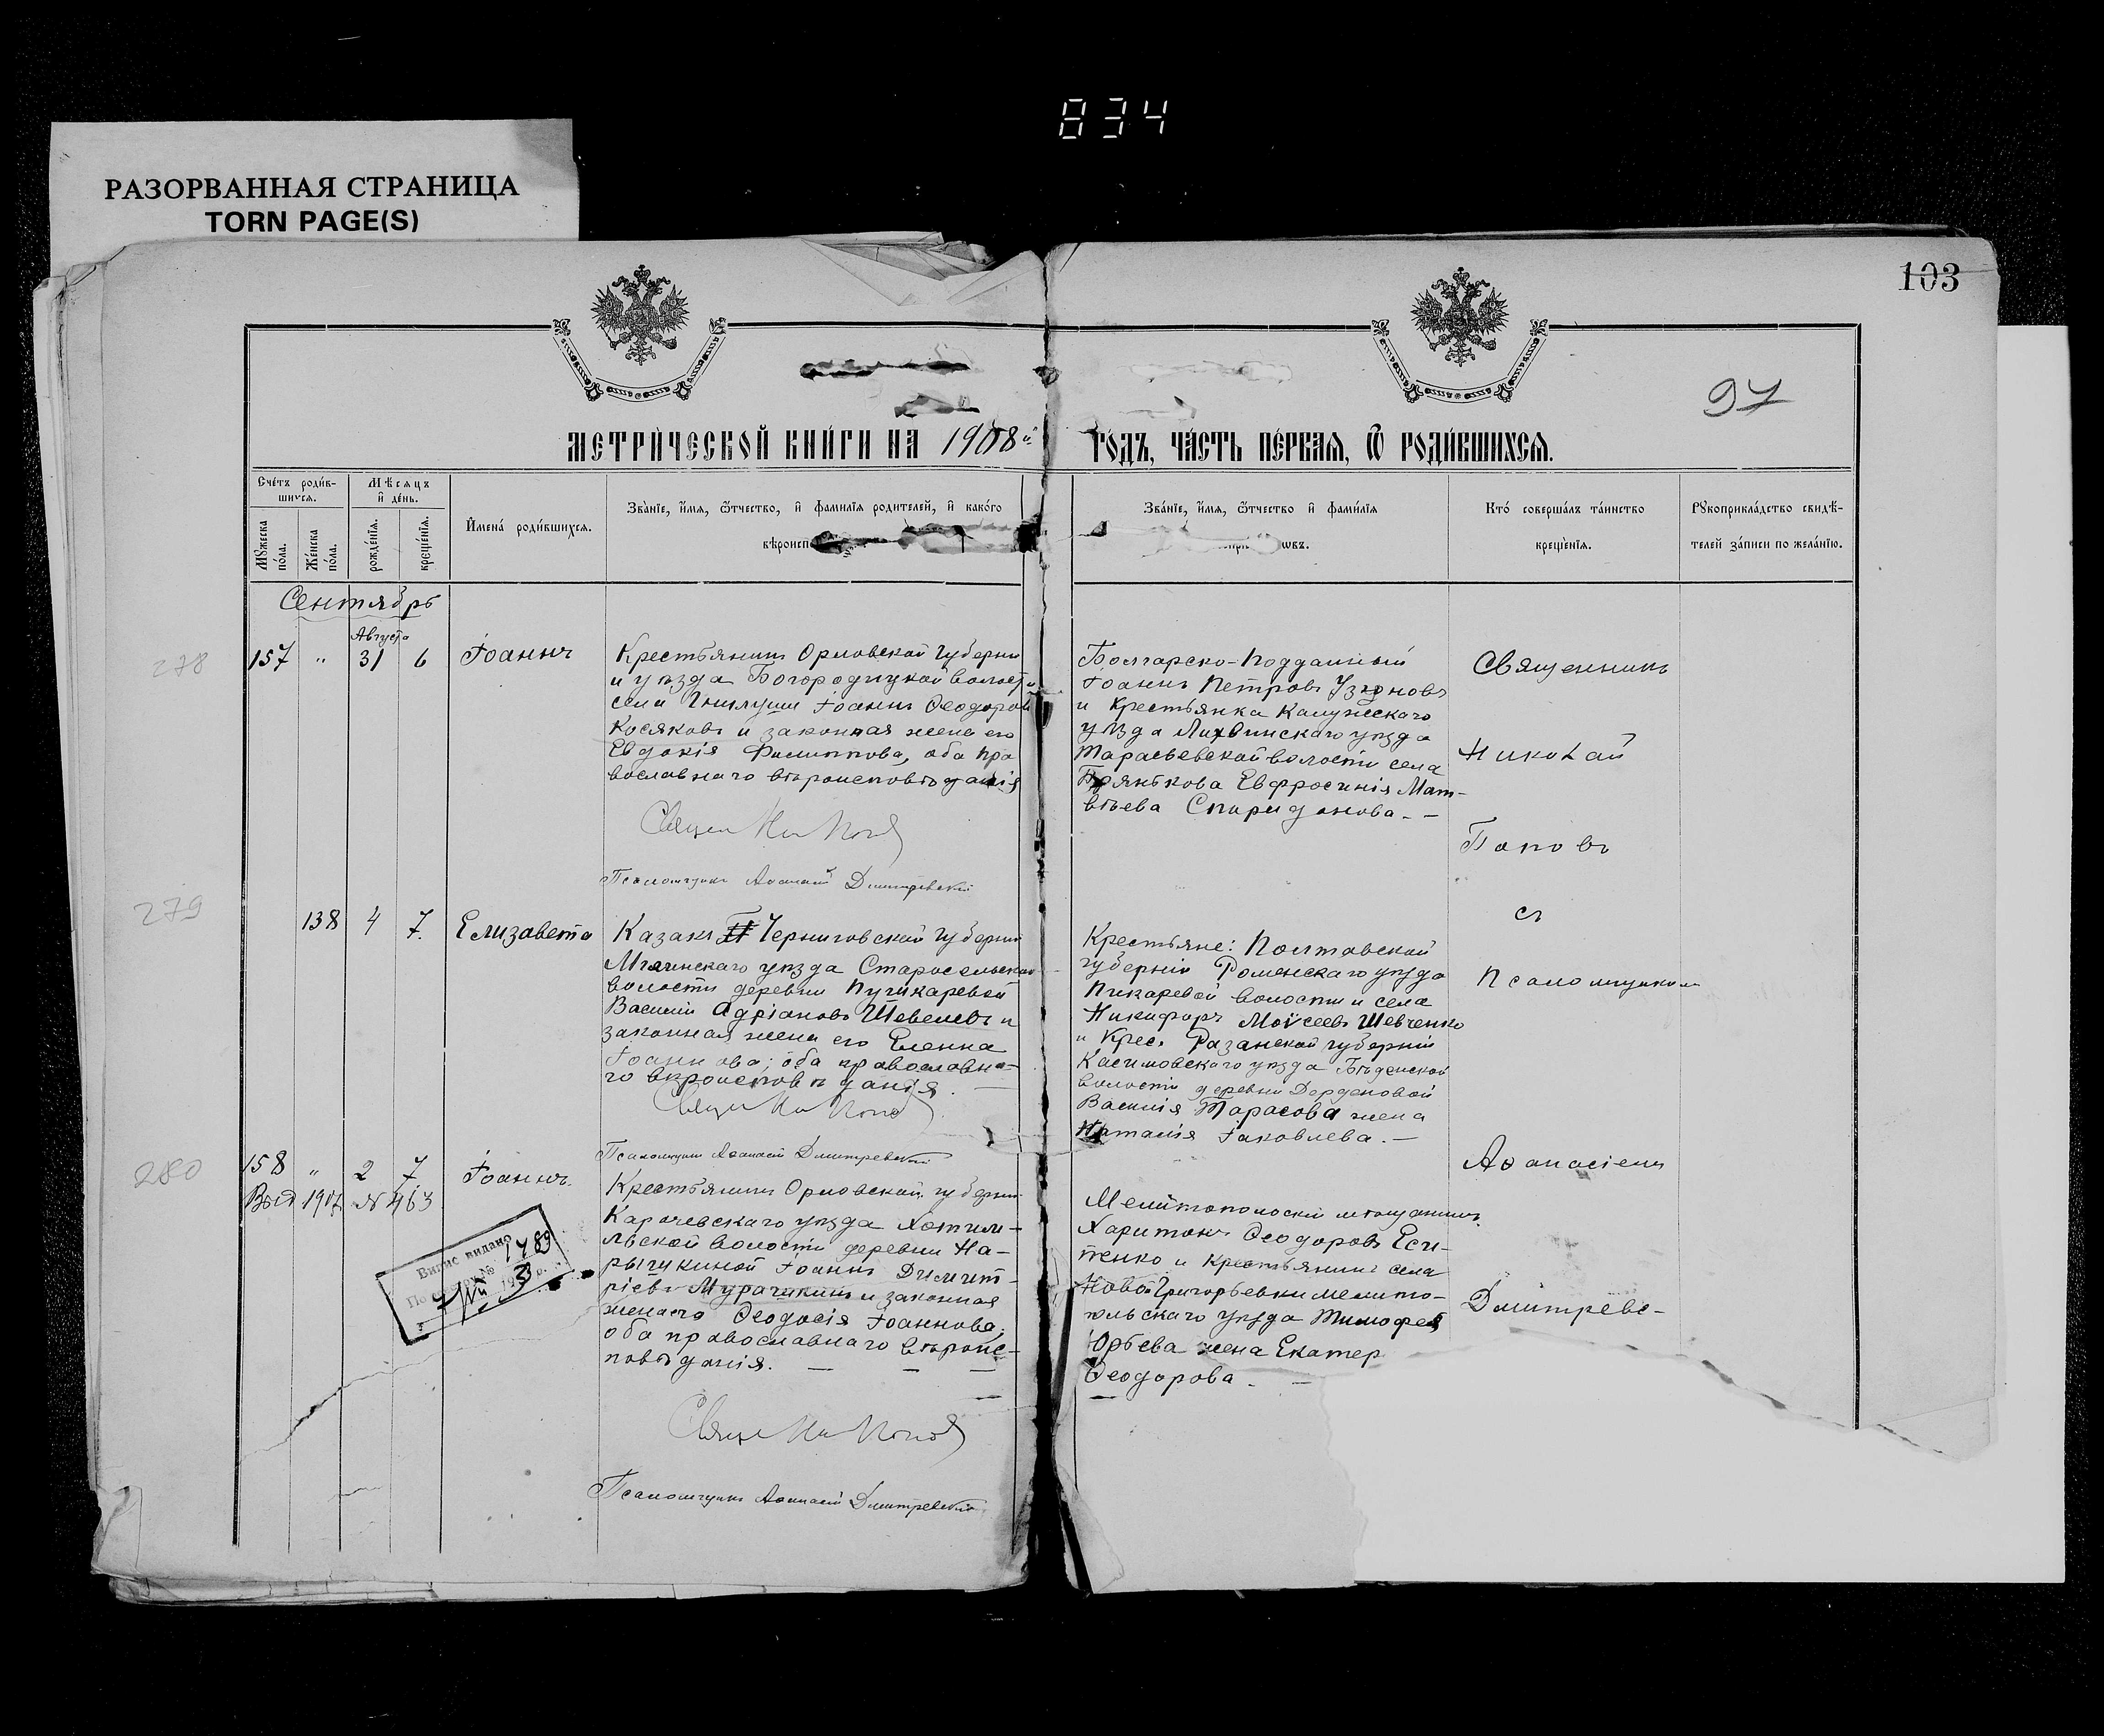 834
РАЗОРВАННАЯ СТРАНИЦА
TORN PAGE(S)
103
97
МЕТРИ́ЧЕСКОЙ КНИ́ГИ НА 1908й
ГО́ДЪ, ЧА́СТЬ ПЕ́РВАЯ, Ѿ РОДИ́ВШИХСЯ.
Сче́тъ роди́в-
шихся.
Мѣсяцъ
и де́нь.
Му́жеска по́ла.
Же́нска по́ла.
рожде́нїя.
креще́нїя.
Имена́ роди́вшихся.
Зва́нїе, и́мя, ѻ́тчество, и фами́лїя роди́телей, и како́го
вѣроисп
Зва́нїе, и́мя, ѻ́тчество и фами́лїя
Кто́ соверша́лъ та́инство
креще́нїя.
Рꙋкоприкла́дство свидѣ́-
телей за́писи по жела́нїю.
Сентябрь
Августа
278
157 " 31 6 Іоаннъ
Крестьянинъ Орловской губерни
и уѣзда Богородицкой волости
села Іоаннъ Ѳеодоровъ
Косяковъ и законная жена его
Евдокія Филиппова, оба пра
вославнаго вѣроисповѣданія
Псаломщикъ Аѳанасій Дмитревскій
Болгарско-подданный
Іоаннъ Петровъ Узоновъ
и крестьянка Калужскаго
уѣзда Лихвинскаго уѣзда
Тарасьевской волости села
Евфросинія Мат-
вѣева Спиридонова. -
Священникъ
Николай
Поповъ
съ
Псаломщикомъ
Аѳанасіемъ
Дмитревс-
279
138 4 7. Елизавета
Казакъ Черниговской губерніи
Мглинскаго уѣзда Старосельской
волости деревни Пучкаревой
Василій Адріановъ Шевелевъ и
законная жена его Еленна
Іоаннова; оба православна-
го вѣроисповѣданія. -
Псаломщикъ Аѳанасій Дмитревскій
Крестьяне: Полтавской
губерніи Роменскаго уѣзда
Пикаревой волости и села
Никифоръ Моѵсеевъ Шевченко
и Крес. Разанской губерніи
Касимовскаго уѣзда
волости деревни
Василія Тарасова жена
Наталія Іаковлева. -
280
158 " 2 7. Іоаннъ.
Выд 1907 № 463
Випис видано
1489
Крестьянинъ Орловской губерніи
Карачевскаго уѣзда Хотим-
льской волости деревни На-
рышкиной Іоаннъ Димит-
ріевъ Мурачикинъ и законная
жена его Ѳеодосія Іоаннова;
оба православнаго вѣроис-
повѣданія. - - -
Псаломщикъ Аѳанасій Дмитревскій
Мелитопольскій мѣщанинъ
Харитонъ Ѳеодоровъ Еси-
пенко и крестьянинъ села
Новогригорьевки Мелито-
польскаго уѣзда Тимофея
Юрьева жена Екатер
Ѳеодорова. -